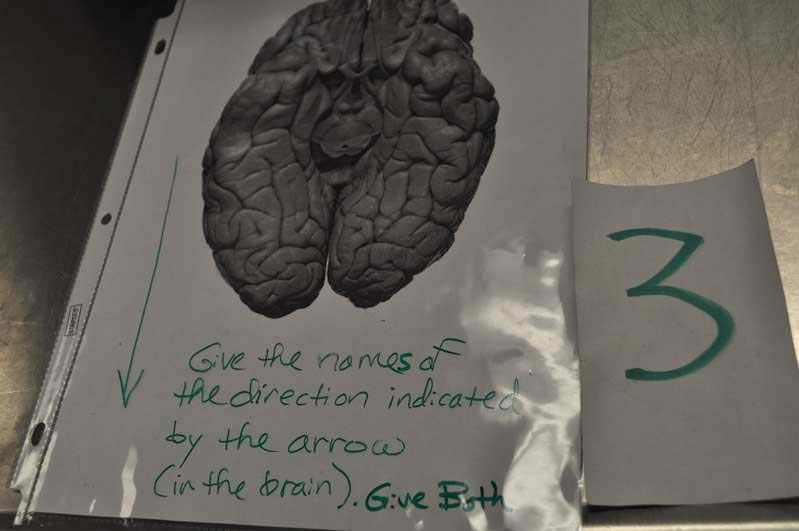 Give the names of
the direction indicated
by the arrow
(in the brain). Give Both
3